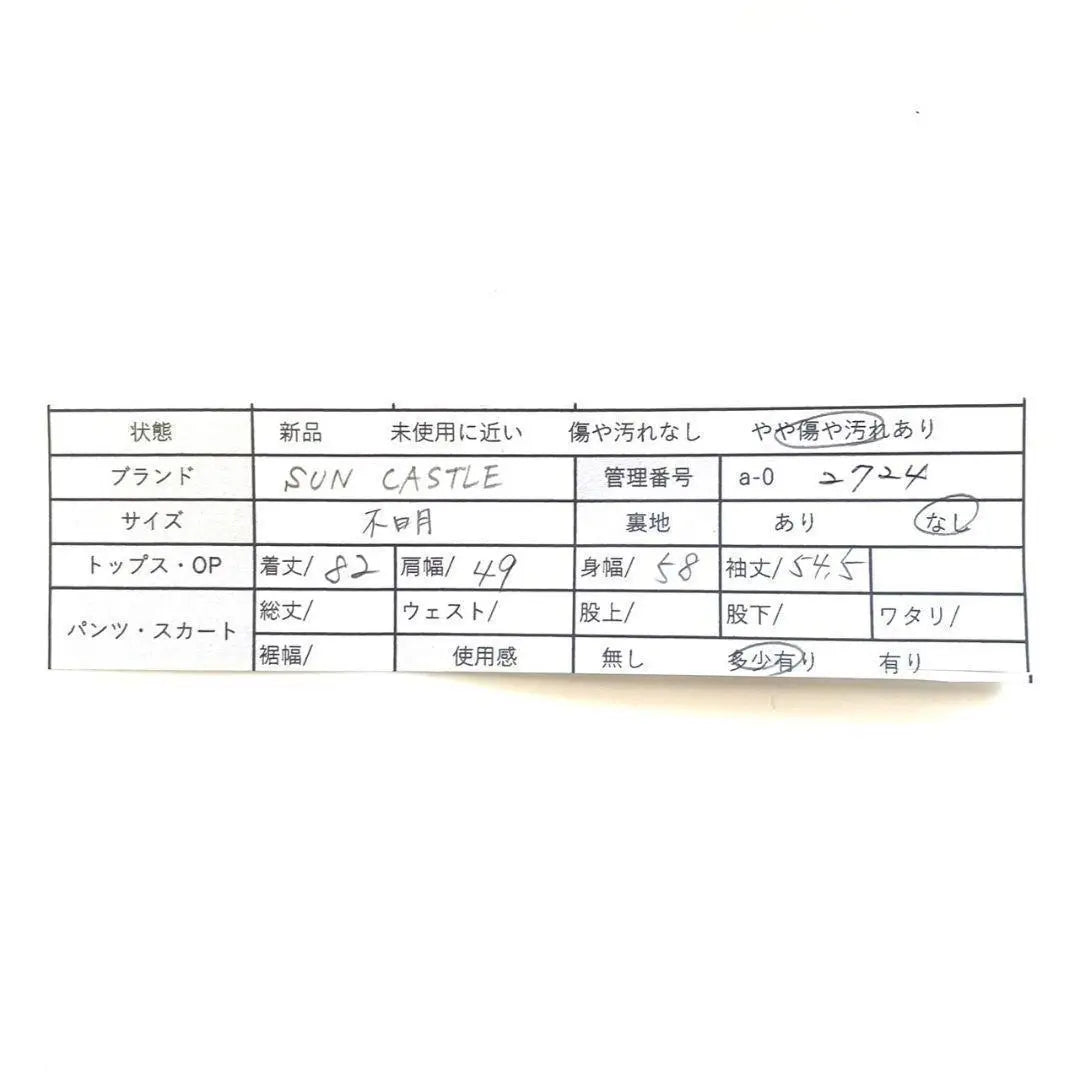 状態 新品 未使用に近い 傷や汚れなし やや傷や汚れあり
ブランド SUN CASTLE 管理番号 a-0 2724
サイズ 不明 裏地 あり なし
トップス・OP 着丈/ 82 肩幅/ 49 身幅/ 58 袖丈/ 54.5
パンツ・スカート 総丈/ ウェスト/ 股上/ 股下/ ワタリ/
裾幅/ 使用感 無し 多少有り 有り